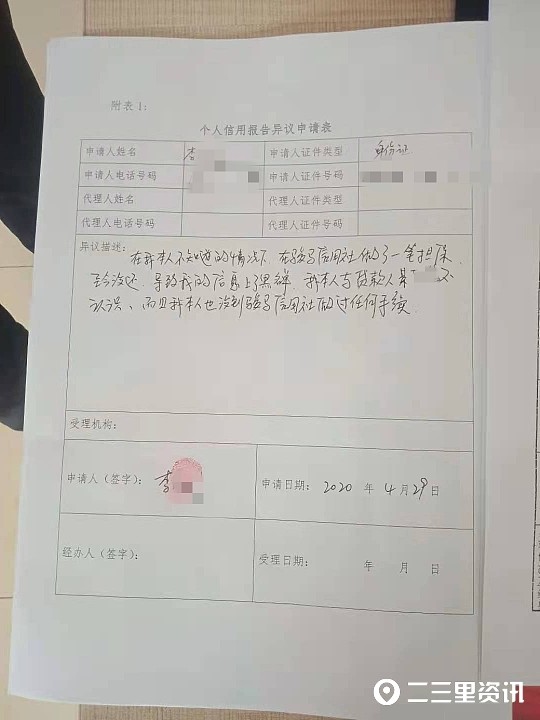 附表1:
个人信用报告异议申请表
申请人姓名 李 申请人证件类型 身份证
申请人电话号码 申请人证件号码
代理人姓名 代理人证件类型
代理人电话号码 代理人证件号码
异议描述: 在我本人不知道的情况下, 在驿马信用社做了一笔担保,
至今没还, 导致我的信息上了黑群. 我本人与贷款人某 不
认识、而且我本人也没到驿马信用社做过任何手续.
受理机构:
申请人(签字): 李 申请日期: 2020 年 4 月 29 日
经办人(签字): 受理日期: 年 月 日
二三里资讯